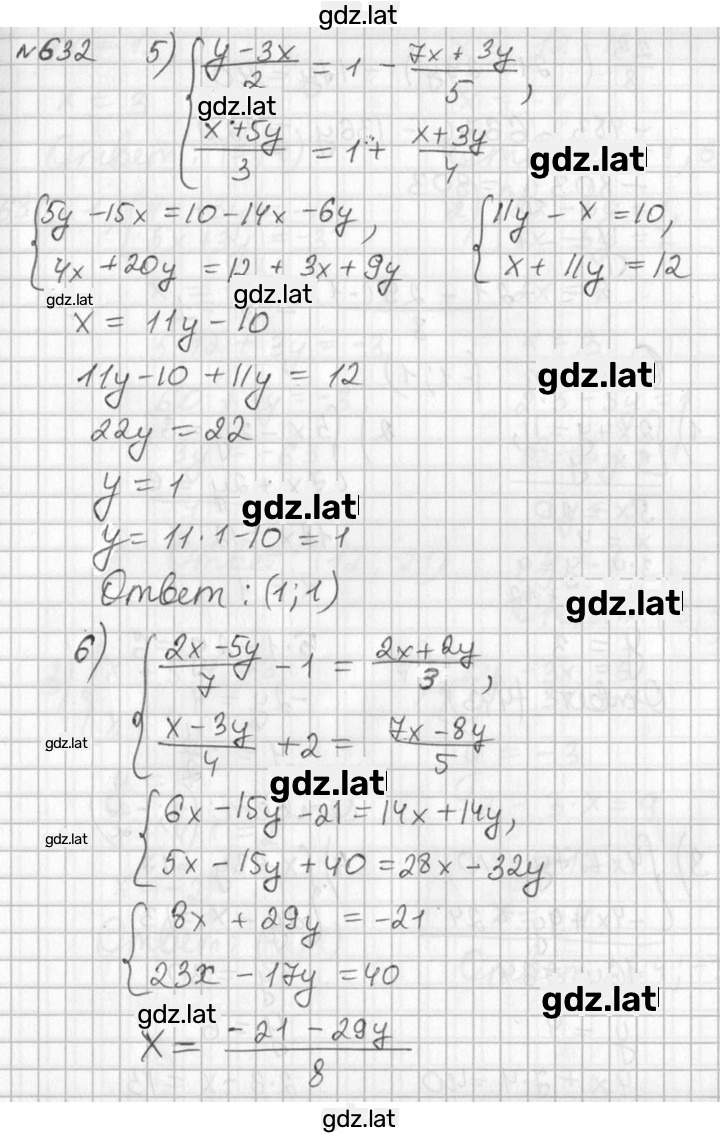 gdz.lat
№632 5) { (y - 3x)/2 = 1 - (7x + 3y)/5 ,
gdz.lat
(x + 5y)/3 = 1 + (x + 3y)/4
gdz.lat
{ 5y - 15x = 10 - 14x - 6y , { 11y - x = 10,
4x + 20y = 12 + 3x + 9y x + 11y = 12
gdz.lat gdz.lat
x = 11y - 10
11y - 10 + 11y = 12 gdz.lat
22y = 22
y = 1
gdz.lat
y = 11 · 1 - 10 = 1
Ответ : (1; 1)
gdz.lat
6) { (2x - 5y)/7 - 1 = (2x + 2y)/3 ,
(x - 3y)/4 + 2 = (7x - 8y)/5
gdz.lat
gdz.lat
{ 6x - 15y - 21 = 14x + 14y,
gdz.lat
5x - 15y + 40 = 28x - 32y
{ 8x + 29y = -21
23x - 17y = 40
gdz.lat
gdz.lat
x = (-21 - 29y)/8
gdz.lat